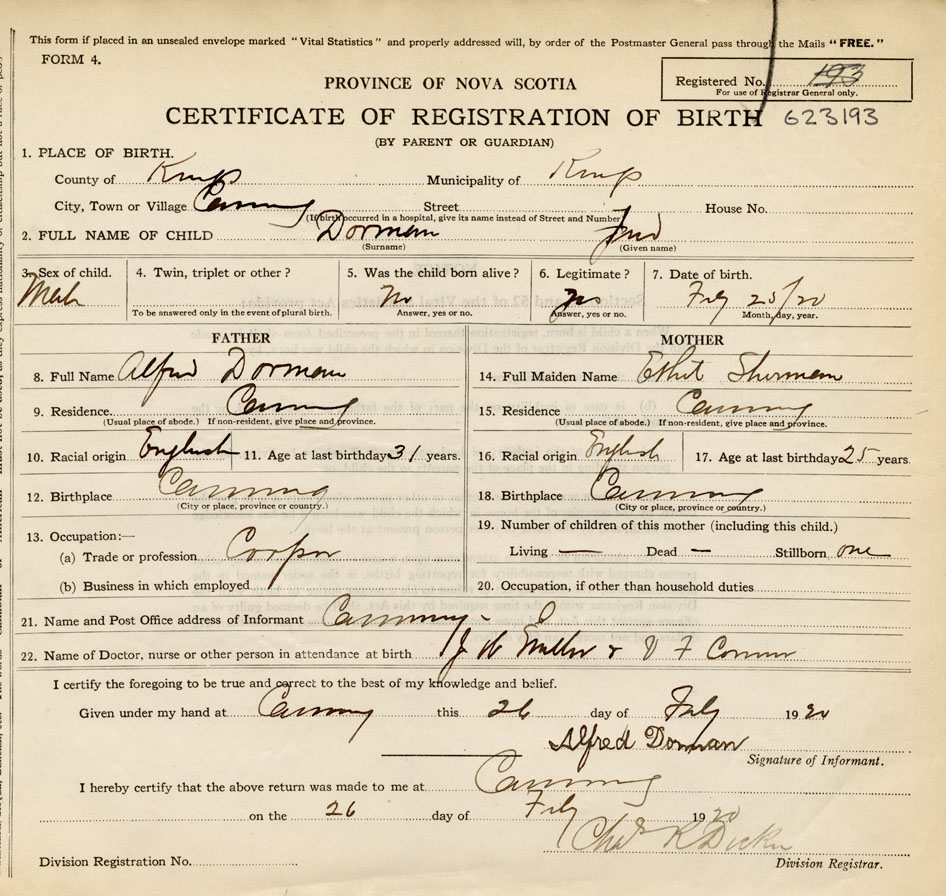 This form if placed in an unsealed envelope marked "Vital Statistics" and properly addressed will, by order of the Postmaster General pass through the Mails "FREE."
FORM 4.
PROVINCE OF NOVA SCOTIA
Registered No. 193
For use of Registrar General only.
CERTIFICATE OF REGISTRATION OF BIRTH 623193
(BY PARENT OR GUARDIAN)
1. PLACE OF BIRTH.
County of Kings Municipality of Kings
City, Town or Village Canning Street House No.
(If birth occurred in a hospital, give its name instead of Street and Number)
2. FULL NAME OF CHILD Dorman
(Surname) (Given name)
3. Sex of child. 4. Twin, triplet or other? 5. Was the child born alive? 6. Legitimate? 7. Date of birth.
Male No yes Feby 25/20
To be answered only in the event of plural birth. Answer, yes or no. Answer, yes or no. Month, day, year.
FATHER MOTHER
8. Full Name Alfred Dorman 14. Full Maiden Name Sherman
9. Residence. Canning 15. Residence Canning
(Usual place of abode.) If non-resident, give place and province. (Usual place of abode.) If non-resident, give place and province.
10. Racial origin English 11. Age at last birthday 31 years. 16. Racial origin English 17. Age at last birthday 25 years.
12. Birthplace Canning 18. Birthplace Canning
(City or place, province or country.) (City or place, province or country.)
13. Occupation:— 19. Number of children of this mother (including this child.)
(a) Trade or profession Cooper Living — Dead — Stillborn one
(b) Business in which employed 20. Occupation, if other than household duties
21. Name and Post Office address of Informant Canning -
22. Name of Doctor, nurse or other person in attendance at birth J W &
I certify the foregoing to be true and correct to the best of my knowledge and belief.
Given under my hand at Canning this 26 day of Feby 1920
Alfred Dorman
Signature of Informant.
I hereby certify that the above return was made to me at Canning
on the 26 day of Feby 1920
Chas R
Division Registration No. Division Registrar.